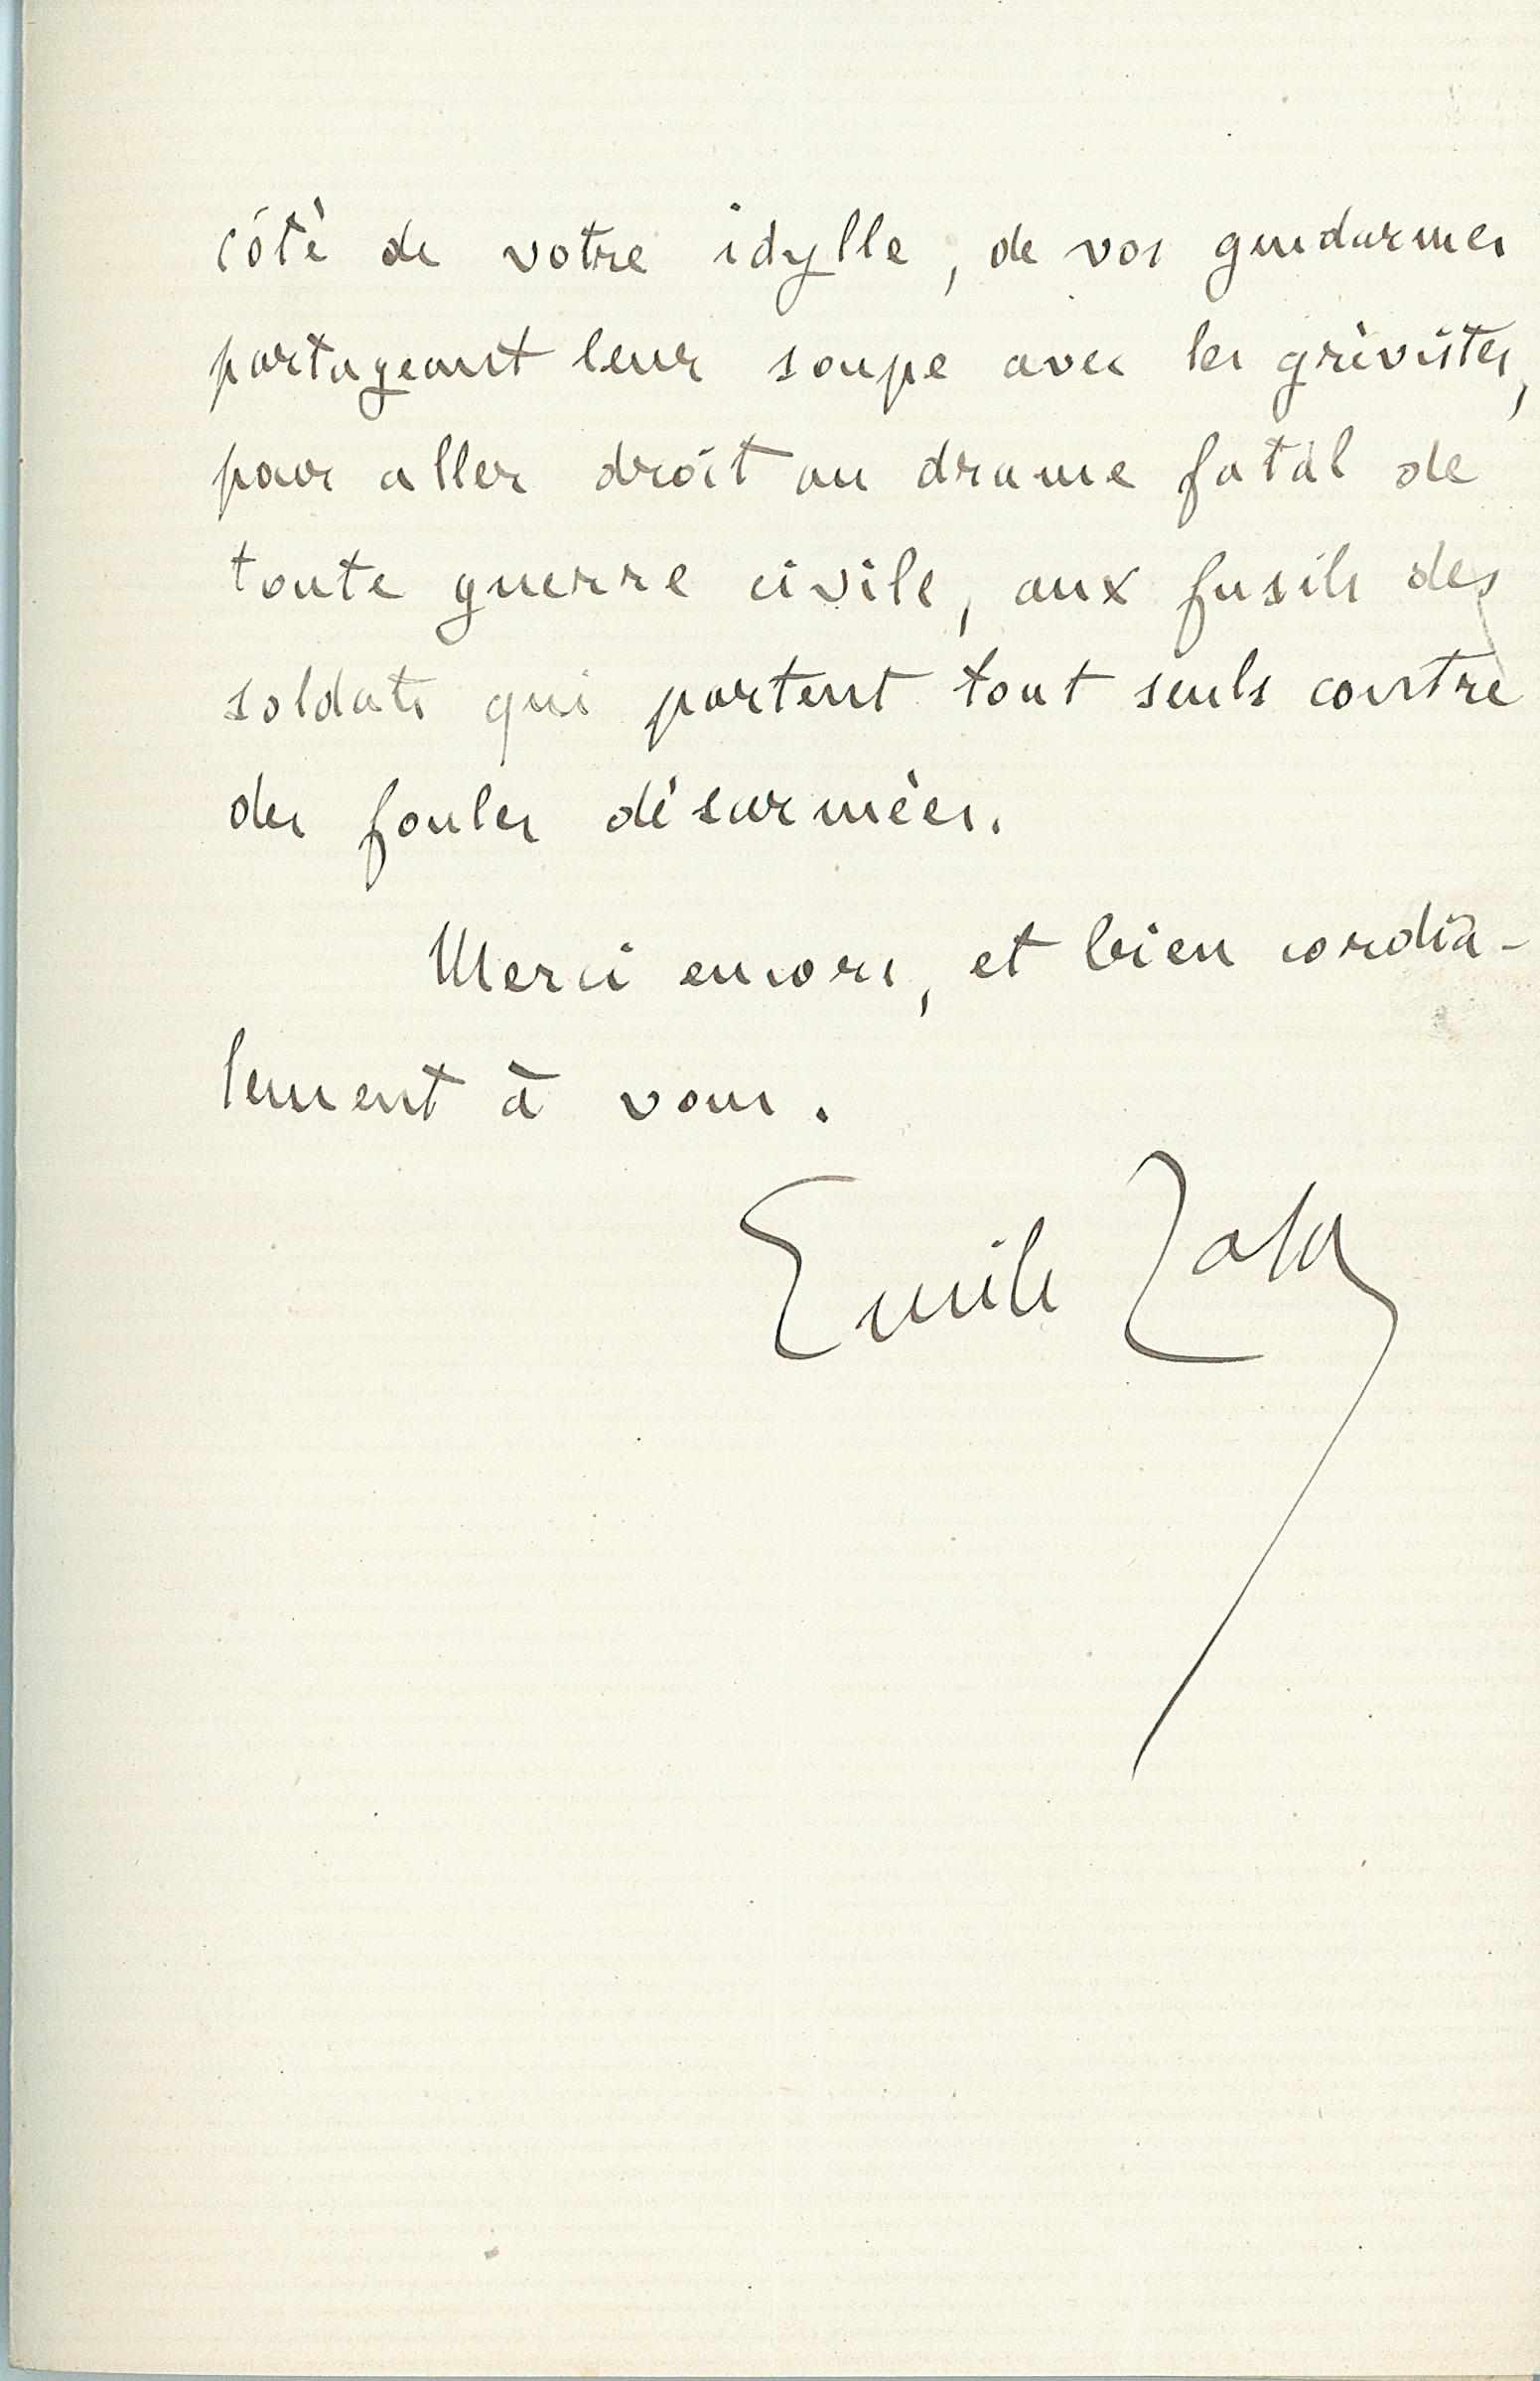 côté de votre idylle, de vos gendarmes
partageant leur soupe avec les grévistes,
pour aller droit au drame fatal de
toute guerre civile, aux fusils des
soldats qui partent tout seuls contre
des foules désarmées.
Merci encore, et bien cordia-
lement à vous.
Emile Zola